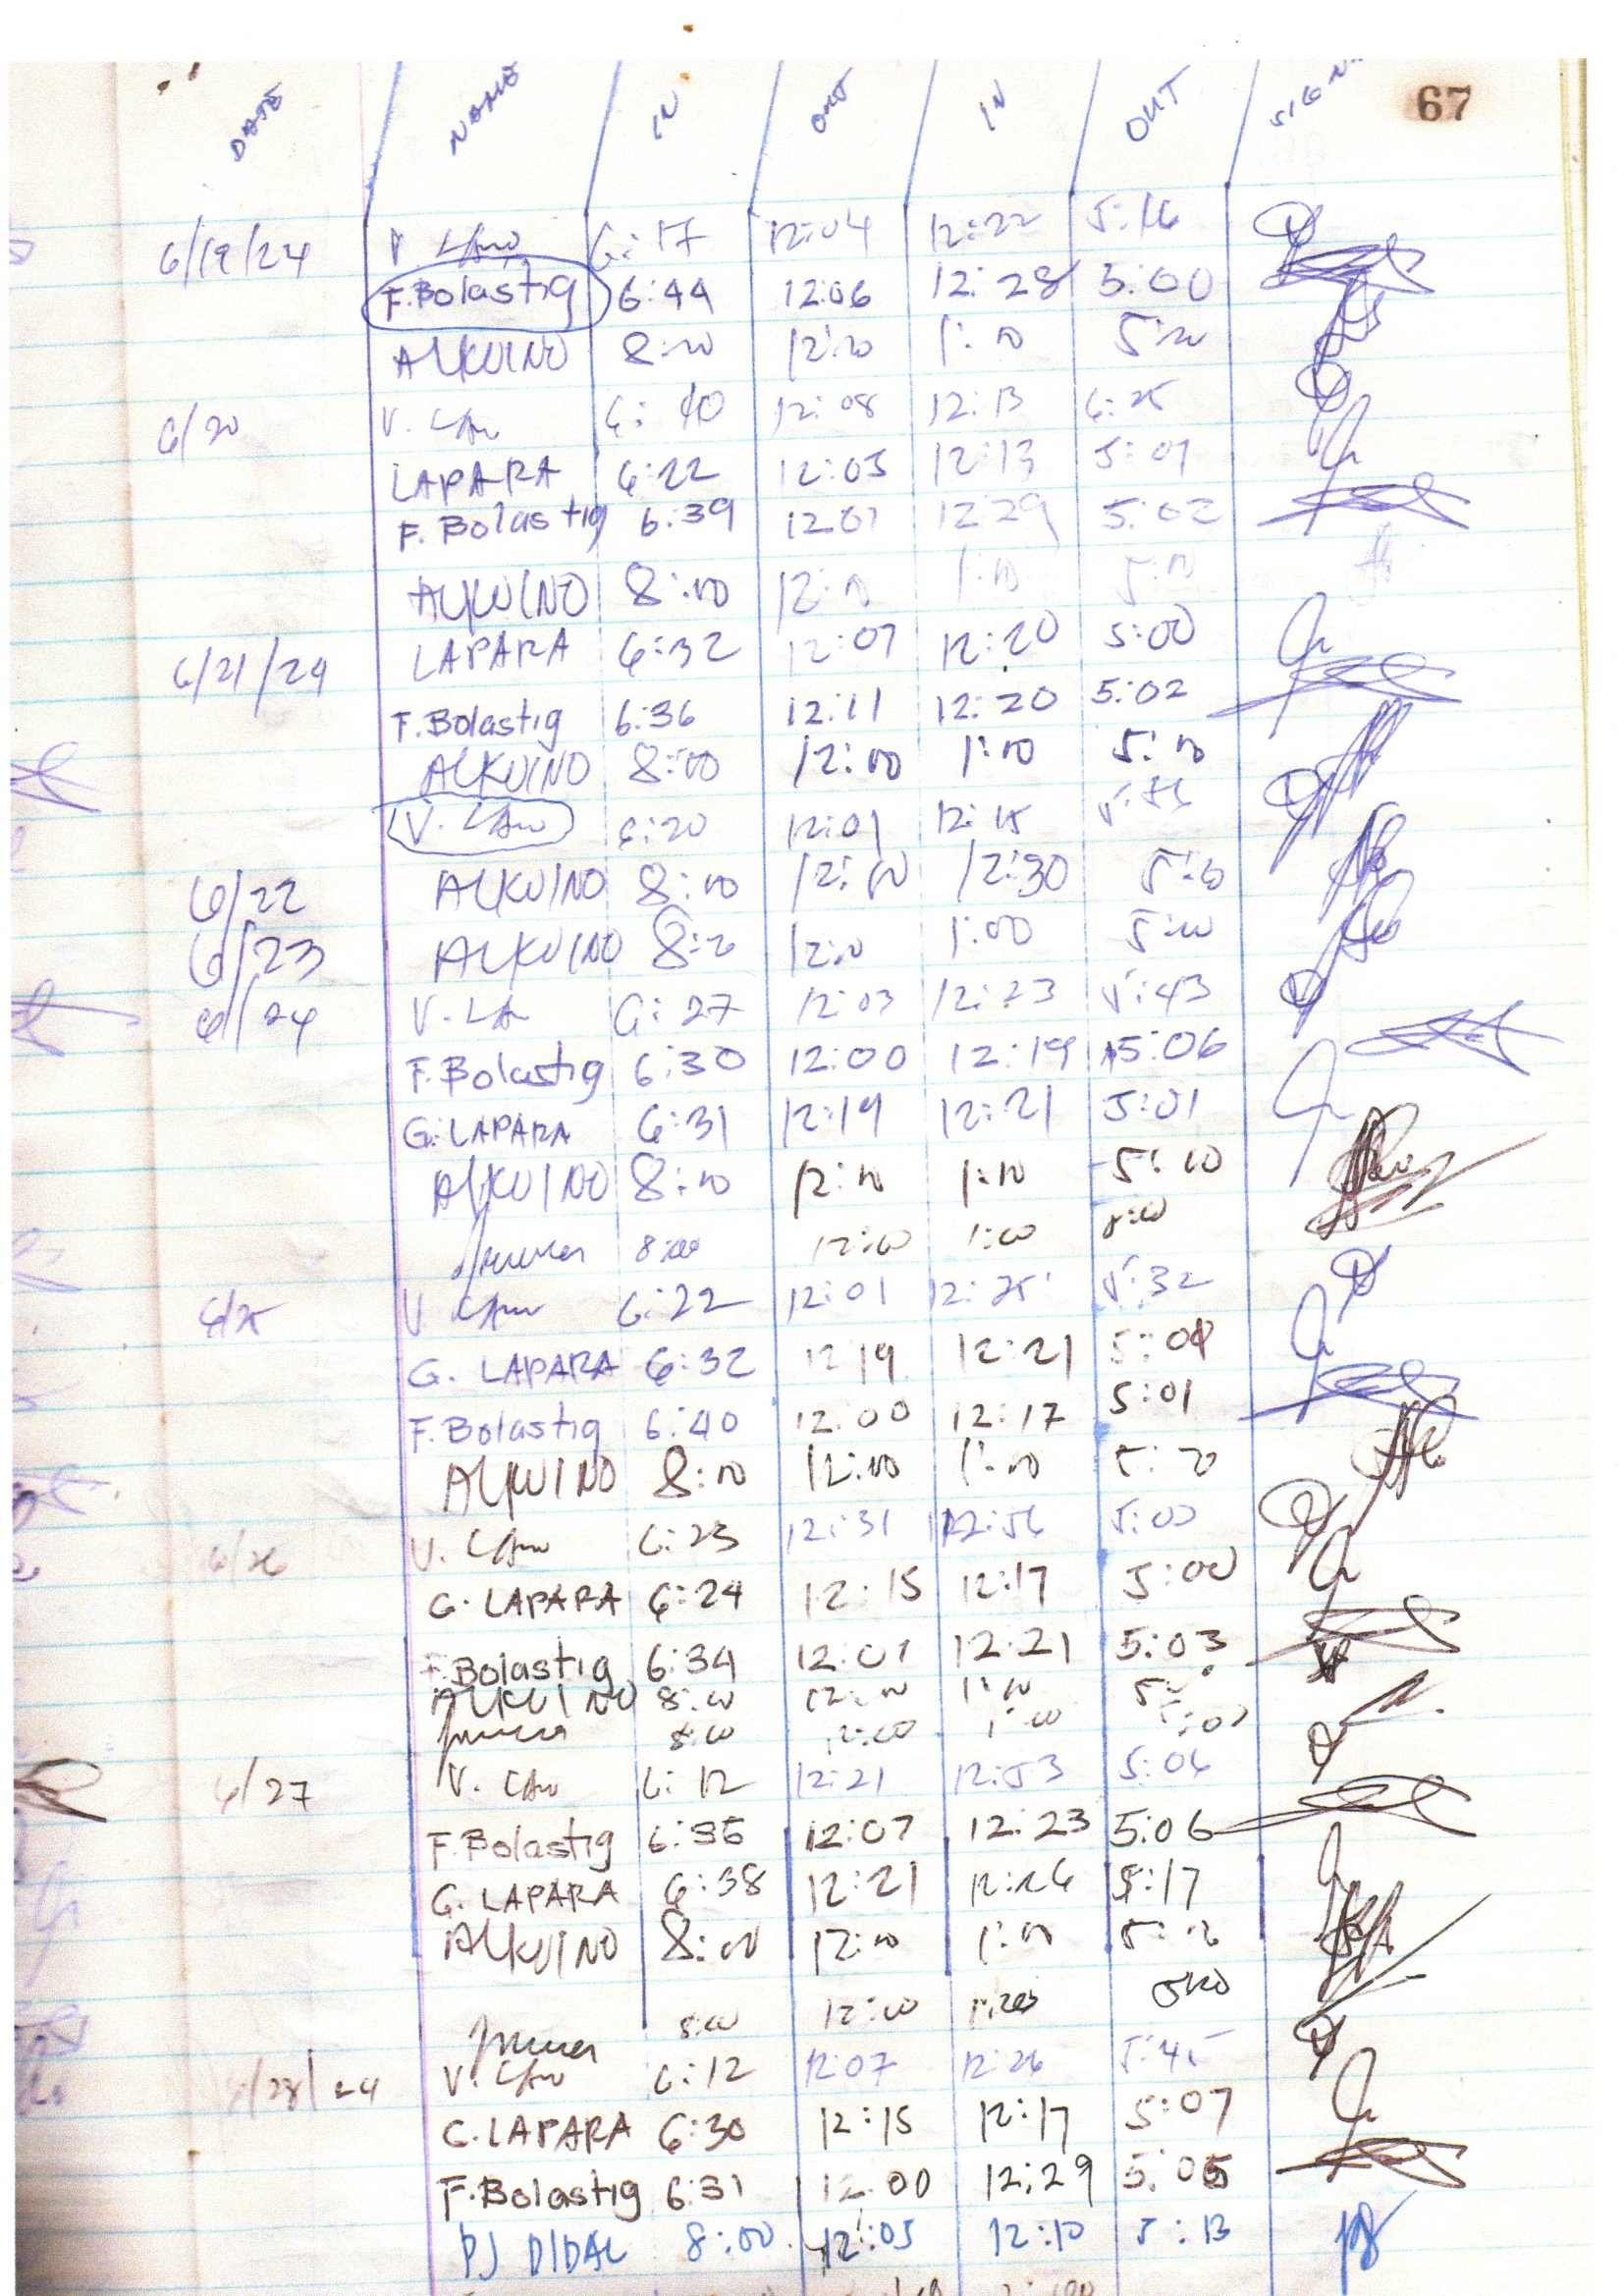 67
DATE NAME IN OUT IN OUT SIGN.
6/19/24 V. 6:17 12:04 12:22 5:16
F.Bolastig 6:44 12:06 12:28 5:00
ALKUINO 8:00 12:00 1:00 5:00
6/20 V. 6:40 12:08 12:13 6:25
LAPARA 6:22 12:05 12:13 5:01
F. Bolastig 6:39 12:01 12:29 5:02
ALKUINO 8:00 12:00 1:00 5:00
6/21/24 LAPARA 6:32 12:07 12:20 5:00
F.Bolastig 6:36 12:11 12:20 5:02
ALKUINO 8:00 12:00 1:00 5:00
V. 6:20 12:01 12:15
6/22 ALKUINO 8:00 12:00 12:30 5:00
6/23 ALKUINO 8:00 12:00 1:00 5:00
6/24 V. 6:27 12:03 12:23 5:43
F.Bolastig 6:30 12:00 12:19 5:06
G. LAPARA 6:31 12:19 12:21 5:01
ALKUINO 8:00 12:00 1:00 5:00
8:00 12:00 1:00
6/25 V. 6:22 12:01 12:25 5:32
G. LAPARA 6:32 12:19 12:21
F.Bolastig 6:40 12:00 12:17 5:01
ALKUINO 8:00 12:00 1:00 5:00
6/26 V. 6:23 12:31 12:56 5:00
G. LAPARA 6:24 12:15 12:17 5:00
F.Bolastig 6:34 12:01 12:21 5:03
ALKUINO 8:00 12:00 1:00
8:00 12:00 1:00
6/27 V. 6:12 12:21 12:53 5:06
F.Bolastig 6:35 12:07 12:23 5:06
G. LAPARA 6:38 12:21 12:26 5:17
ALKUINO 8:00 12:00 1:00 5:00
8:00 12:00 1:00 5:00
6/28/24 V. 6:12 12:07 12:26 5:45
G. LAPARA 6:30 12:15 12:17 5:07
F.Bolastig 6:31 12:00 12:29 5:05
PJ DIDAL 8:00 12:05 12:10 5:13